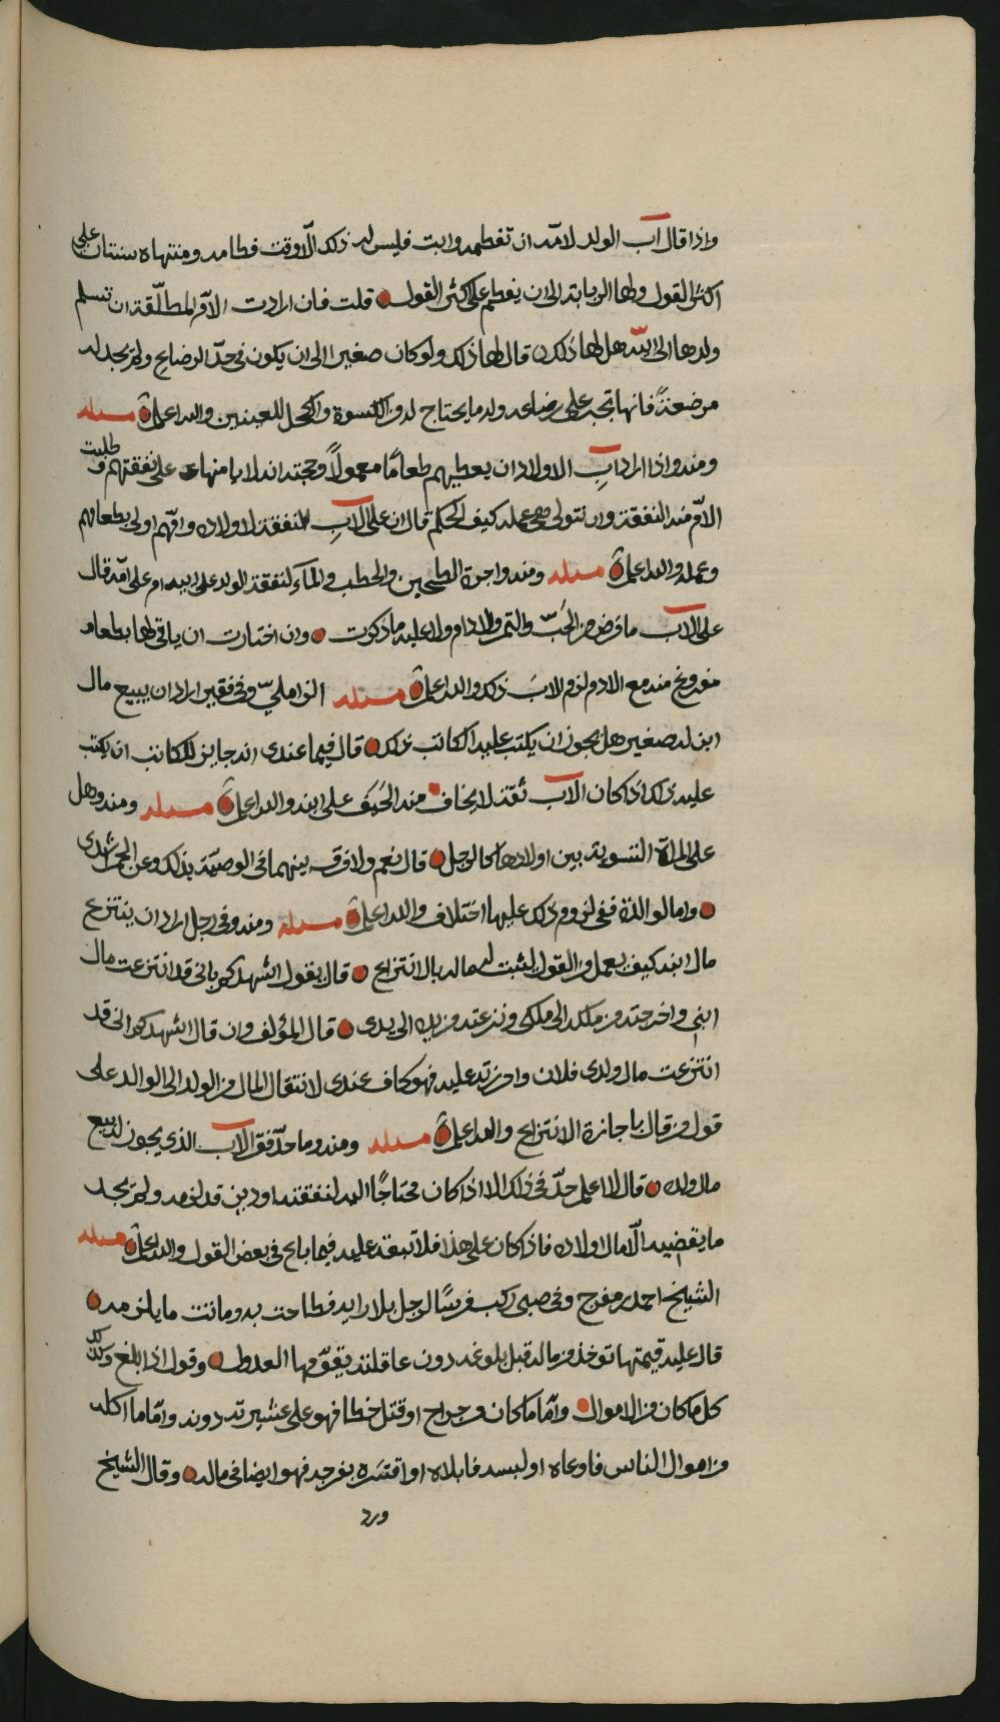 واذا قال اب الولد لامّه ان تفطمه وابت فليس له ذلك الّا وقت فطامه ومنتهاه سنتان على
اكثر القول ولها الربابة الى ان يفطم على اكثر القول قلت فان ارادت الامّ المطلّقة ان تسلم
ولدها الى ابيه هل لها ذلك قال لها ذلك ولو كان صغيرا الى ان يكون في حدّ الرضاع ولم يجد له
مرضعةً فانها تجبر على رضاعه وله ما يحتاج له من الكسوة والكحل للعينين والله اعلم مسئله
ومنه واذا اراد ابِ الاولاد ان يعطيهم طعامًا معمولاً وحجته انه لا يامنها على نفقتهم وطلبت
الامّ منه النفقة وان تتولى هي عمله كيف الحكم قال ان على الابِ النفقة لاولاده وامّهم اولى بطعامهم
وعمله والله اعلم مسئله ومنه واجرة الطحين والحطب والمآء لنفقة الولد على ابيه ام على امّه قال
على الاب ما فرض من الحَبّ والتمر والادام ولا عليه ما ذكرت وان اختارت ان ياتي لها بطعام
مفروغ منه مع الادم لزم الابَ ذلك والله اعلم مسئله الزاملي وفي فقير اراد ان يبيع مال
ابن له صغير هل يجوز ان يكتب عليه الكاتب ذلك قال فيما عندي انه جايز للكاتب ان يكتب
عليه ذلك اذا كان الاب ثقة لا يخاف منه الحَيف على ابنه والله اعلم مسئله ومنه وهل
على المراة التسوية بين اولادها كالرجل قال نعم ولا فرق بينهما في الوصيّة بذلك وعن الجمراشدي
واما الوالدة ففي لزوم ذلك عليها اختلاف والله اعلم مسئله ومنه وفي رجل اراد ان ينتزع
مال ابنه كيف يعمل من القول ليثبت له ماله بالانتزاع قال يقول اشهدكم باني قد انتزعت مال
ابني واخرجته من ملكه الى ملكي ونزعته من يده الى يدي قال المؤلف وان قال اشهدكم اني قد
انتزعت مال ولدي فلان واحرزته عليه فهو كاف عندي لانتقال المال من الولد الى الوالد على
قول من قال باجازة الانتزاع والله اعلم مسئله ومنه وما حدّ فقر الاب الذي يجوز له بيع
مال ولده قال لا اعلم حدّ في ذلك الا اذا كان محتاجًا اليه لنفقته او دين قد لزمه ولم يجد
ما يقضيه الّا مال اولاده فاذا كان على هذا فلا تبعة عليه فيما باع في بعض القول والله اعلم مسئله
الشيخ احمد بن مفرج وفي صبي ركب فرسًا لرجل بلا رايه فطاحت به وماتت ما يلزمه
قال عليه قيمتها توخذ من ماله قبل بلوغه دون عاقلته يقوّمها العدول وقول اذا بلغ وكذلك
كل ما كان من الاموال وامّا ما كان من جراح او قتل خطا فهو على عشيرته دونه وامّا ما اكله
من اموال الناس فاوعاه او لبسه فابلاه او اقتسَره بفرجه فهو ايضا في ماله وقال الشيخ
ورد